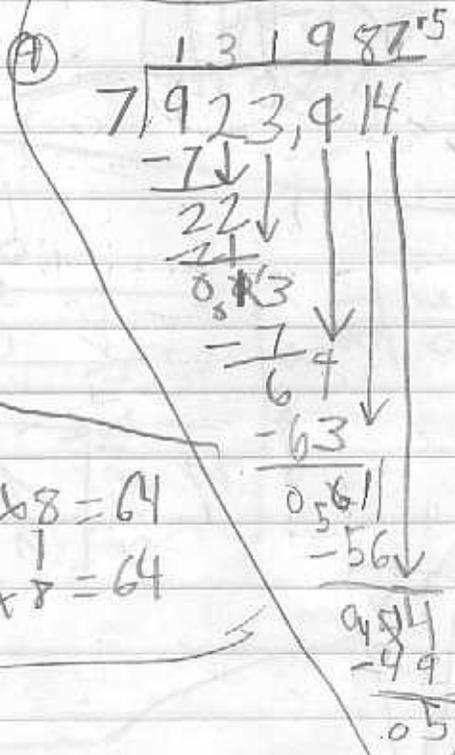 A
1 3 1 9 8 7 r5
7)923,414
-7
22
-21
13
-7
64
-63
0 5 6 11
-56
0 4 8 14
-49
.05
x8=64
1
x8=64